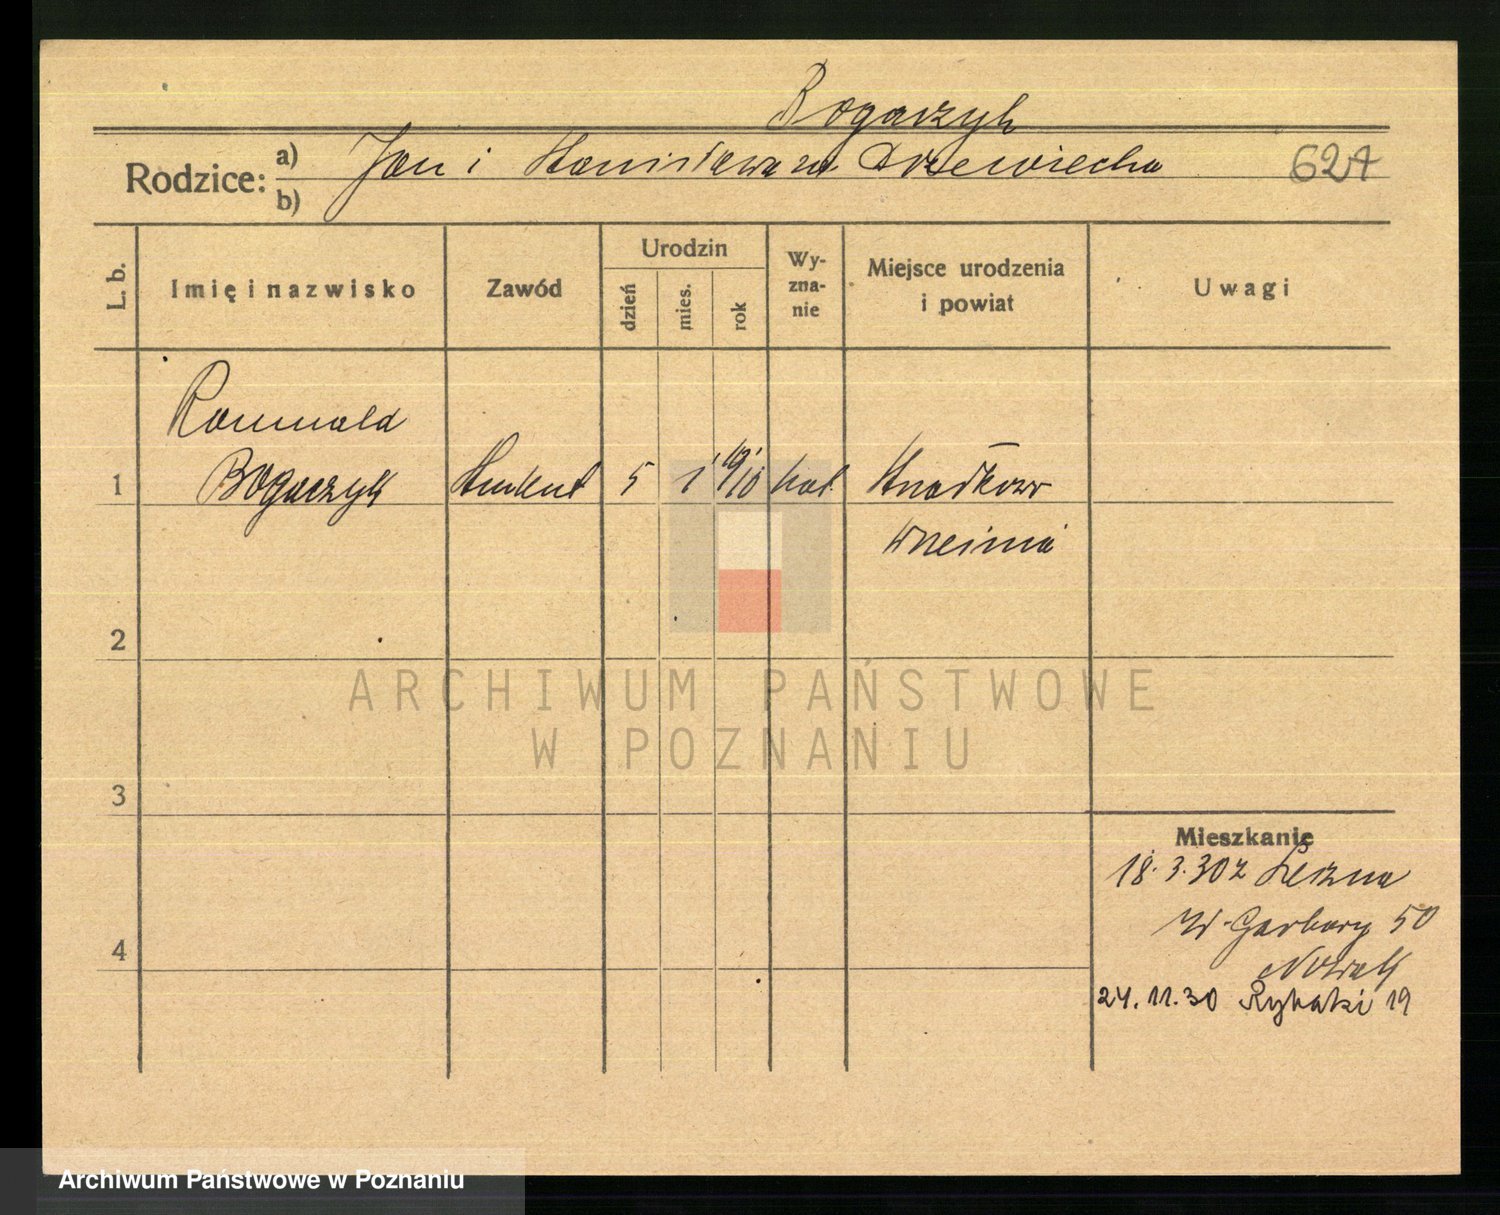 Bogaczyk
Rodzice: a) Jan i Stanisława zd. Drzewiecka 624
b)
L. b. Imię i nazwisko Zawód Urodzin dzień mies. rok Wy-zna-nie Miejsce urodzenia i powiat Uwagi
Romuald
1 Bogaczyk Student 5 1 1910 kat.
Września
2
ARCHIWUM PAŃSTWOWE
W POZNANIU
3
Mieszkanie
18.3.30 z
W. Garbary 50
4
Nowak
24.11.30 Rybaki 19
Archiwum Państwowe w Poznaniu